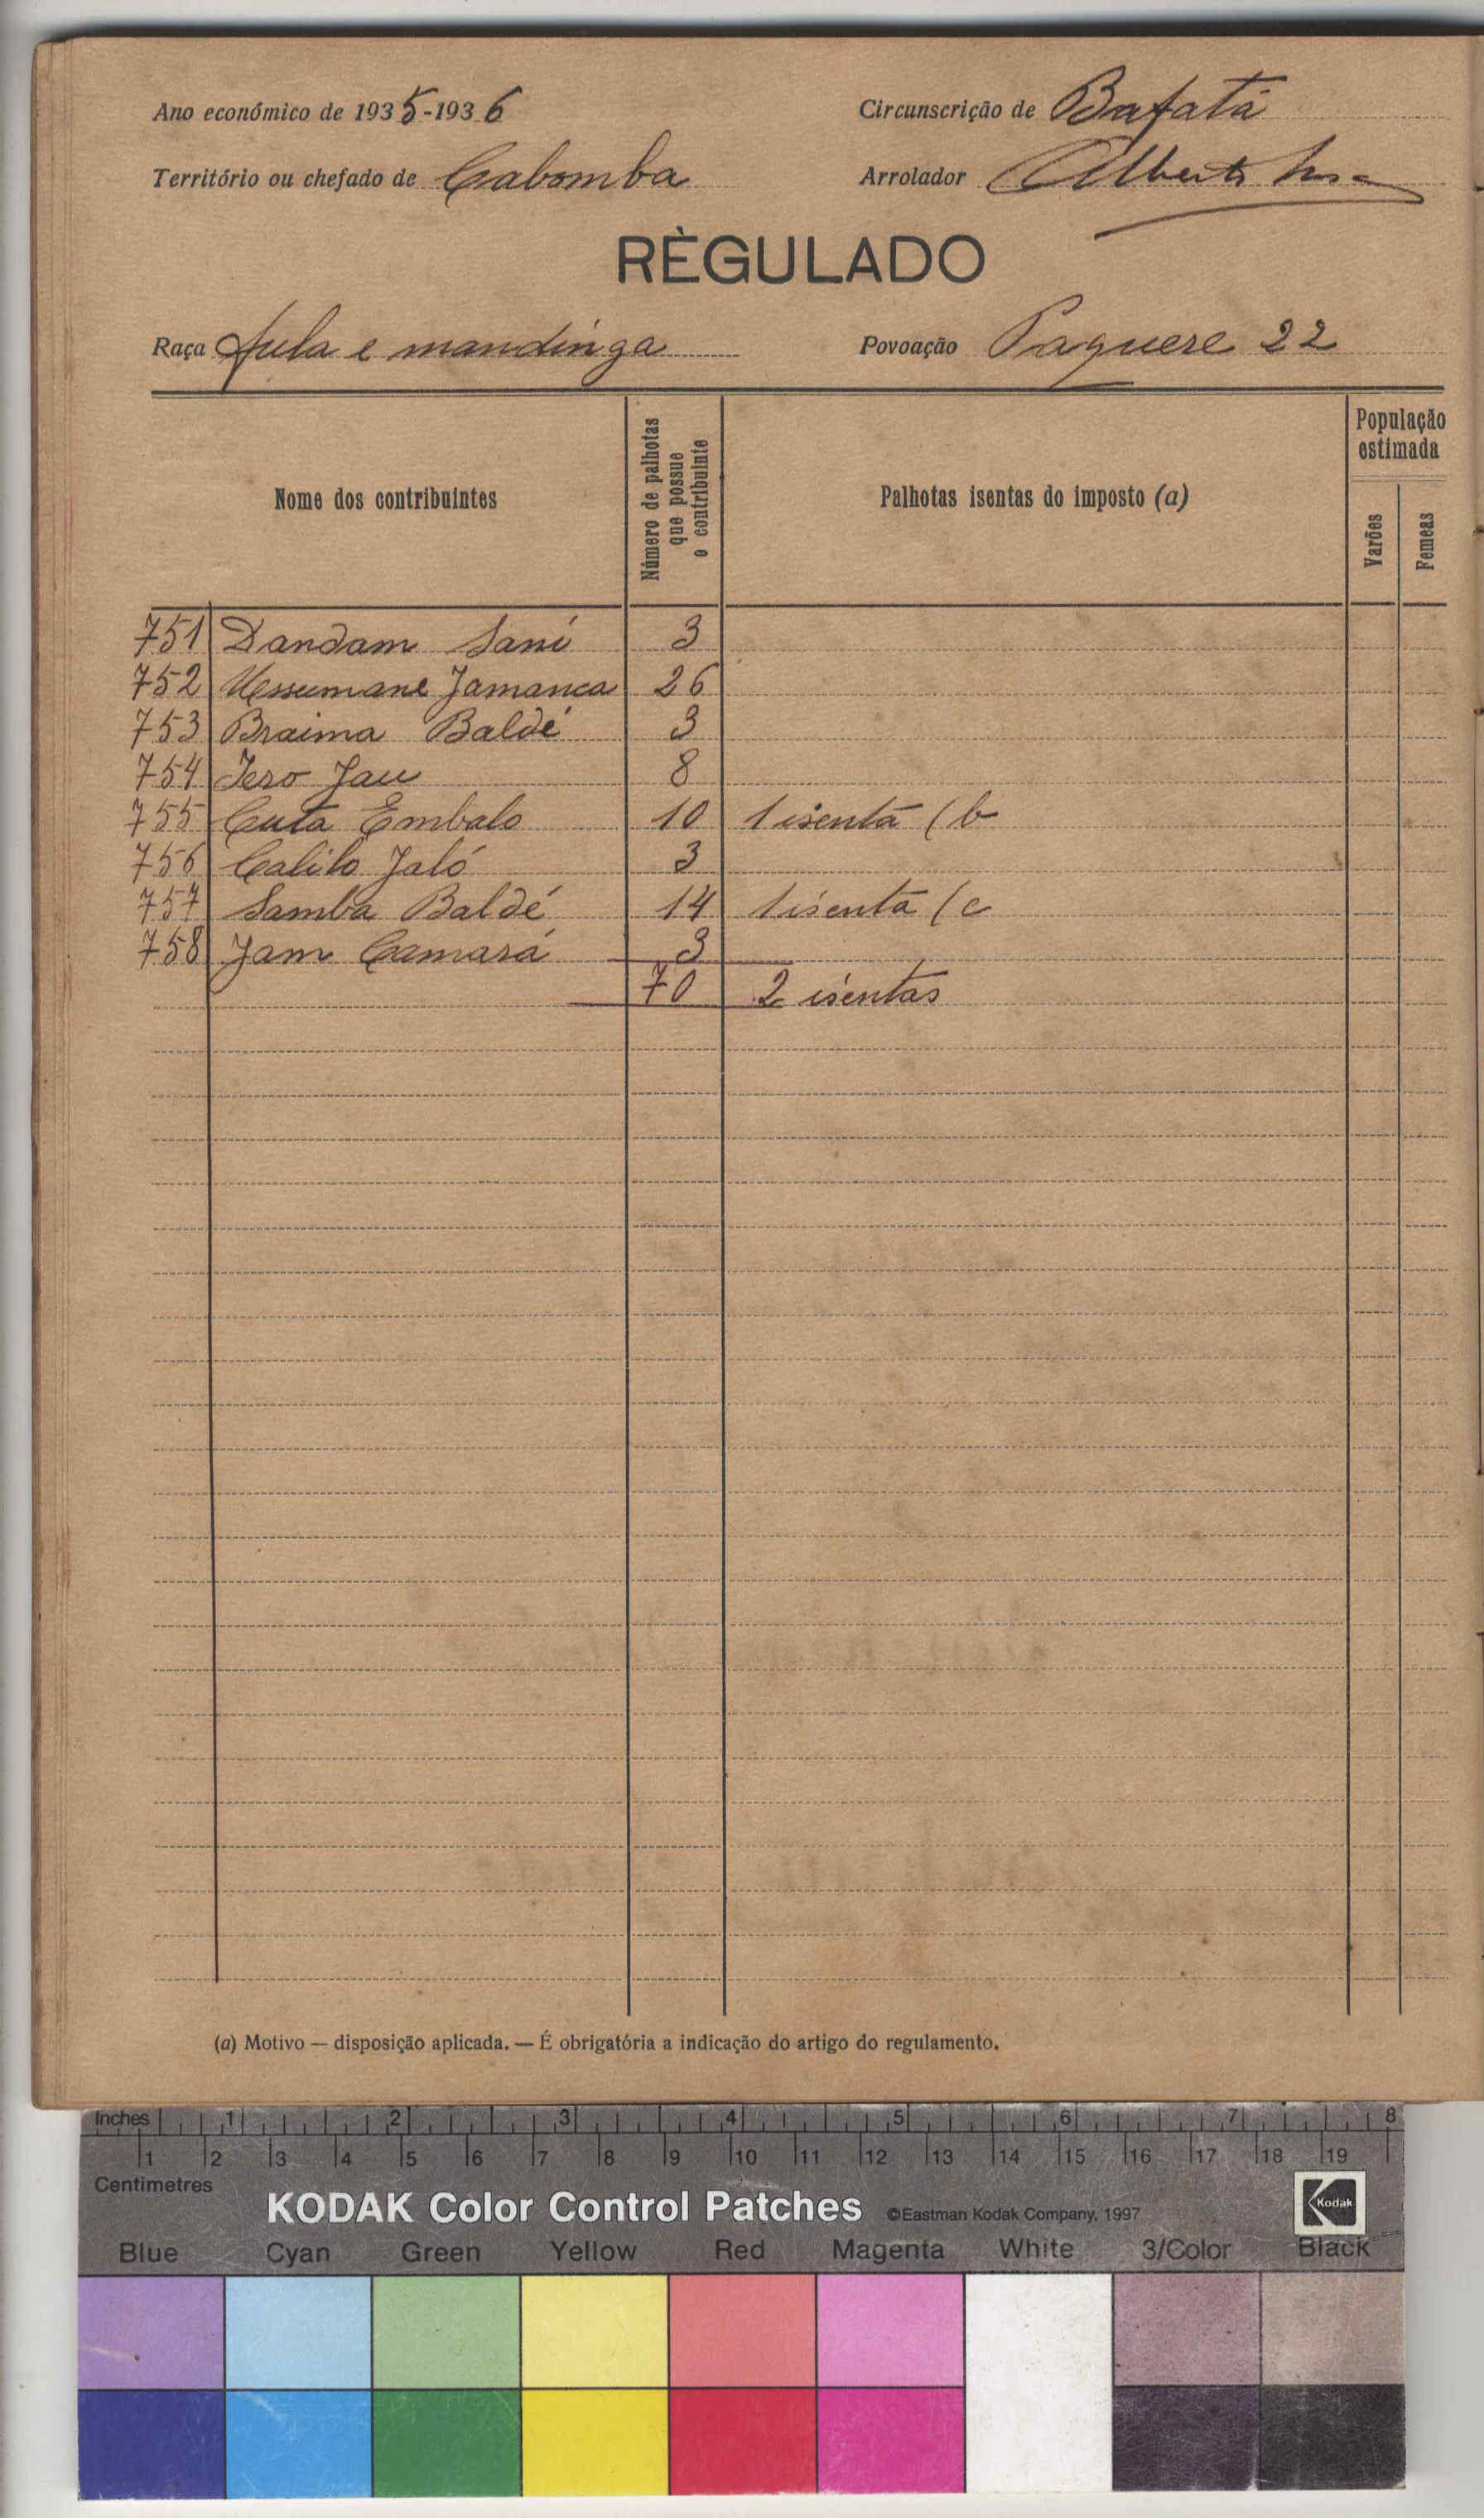 Ano económico de 1935-1936
Circunscrição de Bafatá
Território ou chefado de Cabomba
Arrolador Alberto
RÈGULADO
Raça fula e mandinga
Povoação Paquere 22
Nome dos contribuintes
Número de palhotas que possue o contribuinte
Palhotas isentas do imposto (a)
População estimada
Varões
Femeas
751 Dandam Sani 3
752 Ussumane Jamanca 26
753 Braima Baldé 3
754 Iero Jau 8
755 Cuta Embalo 10 1 isenta (b
756 Calilo Jaló 3
757 Samba Baldé 14 1 isenta (c
758 Jam Camará 3
70 2 isentas
(a) Motivo — disposição aplicada. — É obrigatória a indicação do artigo do regulamento.
Inches 1 2 3 4 5 6 7 8
1 2 3 4 5 6 7 8 9 10 11 12 13 14 15 16 17 18 19
Centimetres
KODAK Color Control Patches ©Eastman Kodak Company, 1997 Kodak
Blue Cyan Green Yellow Red Magenta White 3/Color Black